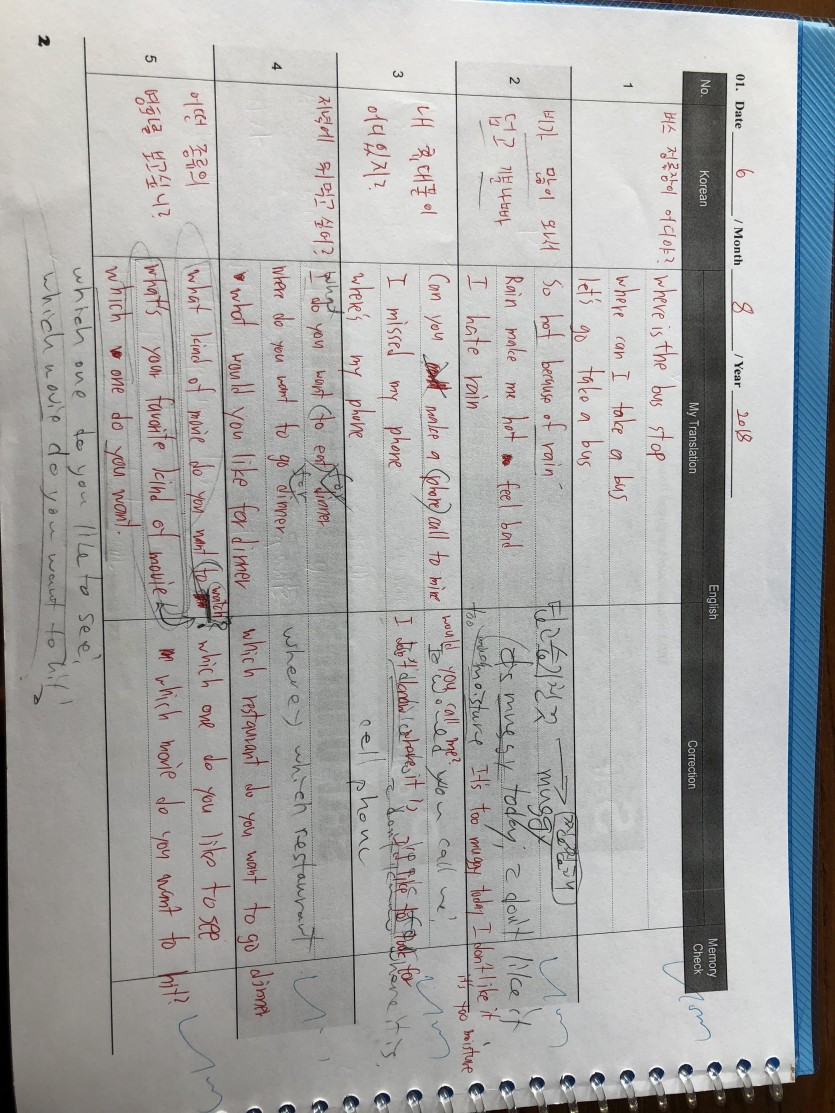 01. Date 6 / Month 8 / Year 2018
No. Korean English Memory Check
My Translation Correction
1
버스 정류장이 어디야?
where is the bus stop
where can I take a bus
let's go take a bus
2
비가 많이 와서
덥고 기분나빠
So hot because of rain
Rain make me hot feel bad
I hate rain
muggy
it's muggy today, I don't like it
too moisture It's too muggy today I don't like it
it's too moisture
3
내 휴대폰이
어디있지?
Can you make a (phone) call to mine
I missed my phone
where's my phone
would you call me?
would you call me,
cell phone
4
저녁에 뭐 먹고 싶어?
what do you want (to eat) for dinner
where do you want to go for dinner
what would you like for dinner
where, which restaurant
which restaurant do you want to go dinner
5
어떤 종류의
영화를 보고싶니?
what kind of movie do you want (to watch?
what's your favorite kind of movie
which one do you want.
which one do you like to see
which movie do you want to hit?
which one do you like to see,
which movie do you want to hit,
2